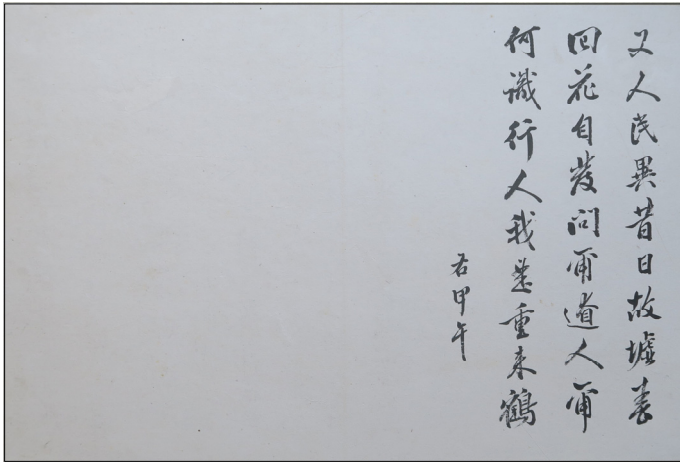 又人民異昔日故墟春
回花自發問爾道人爾
何識行人我是重來鶴
右甲午